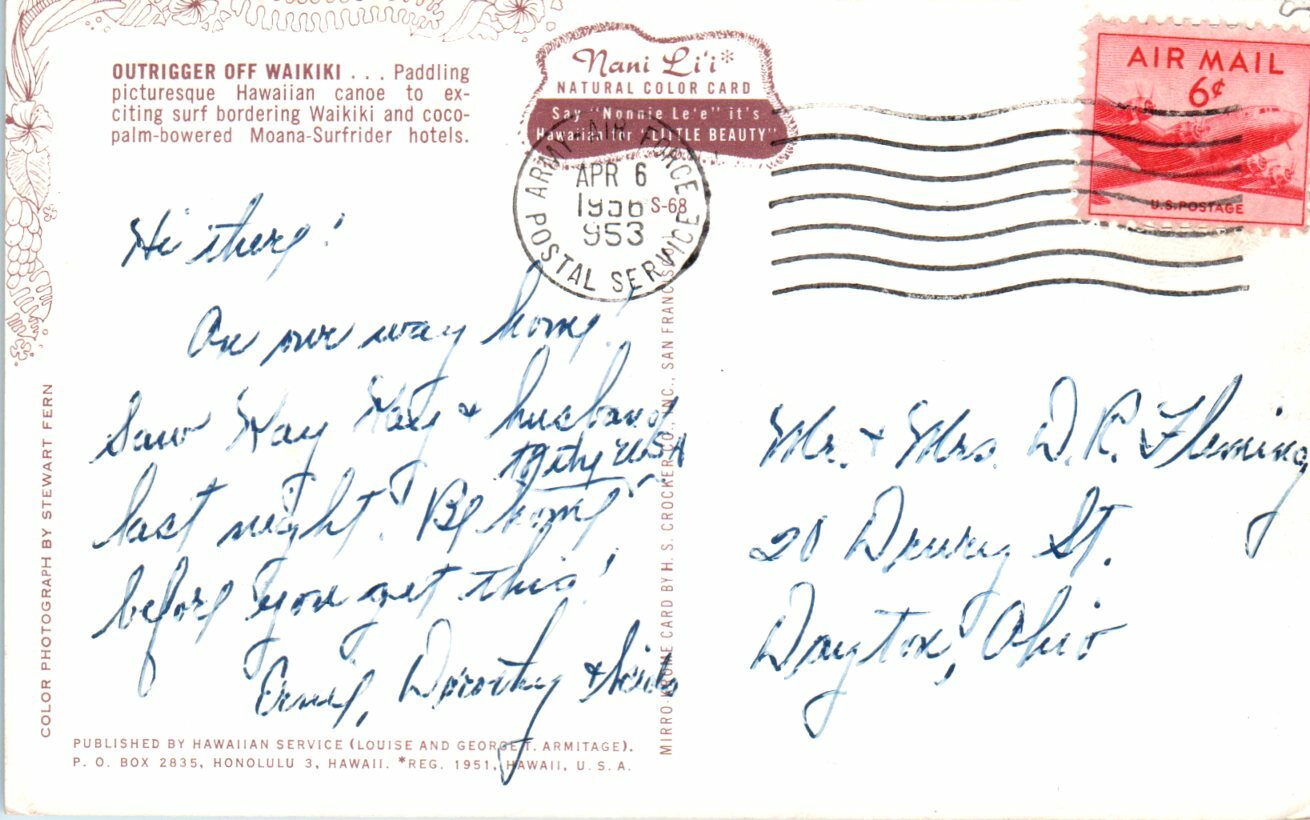 OUTRIGGER OFF WAIKIKI . . . Paddling
picturesque Hawaiian canoe to ex-
citing surf bordering Waikiki and coco-
palm-bowered Moana-Surfrider hotels.
Nani Li'i*
NATURAL COLOR CARD
Say "Nonnie Le'e" it's
Hawaiian for "LITTLE BEAUTY"
ARMY-AIR FORCE
POSTAL SERVICE
APR 6
1956
953
S-68
AIR MAIL
6¢
U.S. POSTAGE
Hi there!
On our way home!
Saw Kay & husband
last night. Be home
to the USA
before you get this!
Ernie, Dorothy &
Mr. & Mrs. D. R. Fleming
20 Drury St.
Dayton, Ohio
COLOR PHOTOGRAPH BY STEWART FERN
MIRRO-KROME CARD BY H. S. CROCKER CO., INC., SAN FRANCISCO
PUBLISHED BY HAWAIIAN SERVICE (LOUISE AND GEORGE T. ARMITAGE).
P. O. BOX 2835, HONOLULU 3, HAWAII. *REG. 1951, HAWAII, U. S. A.